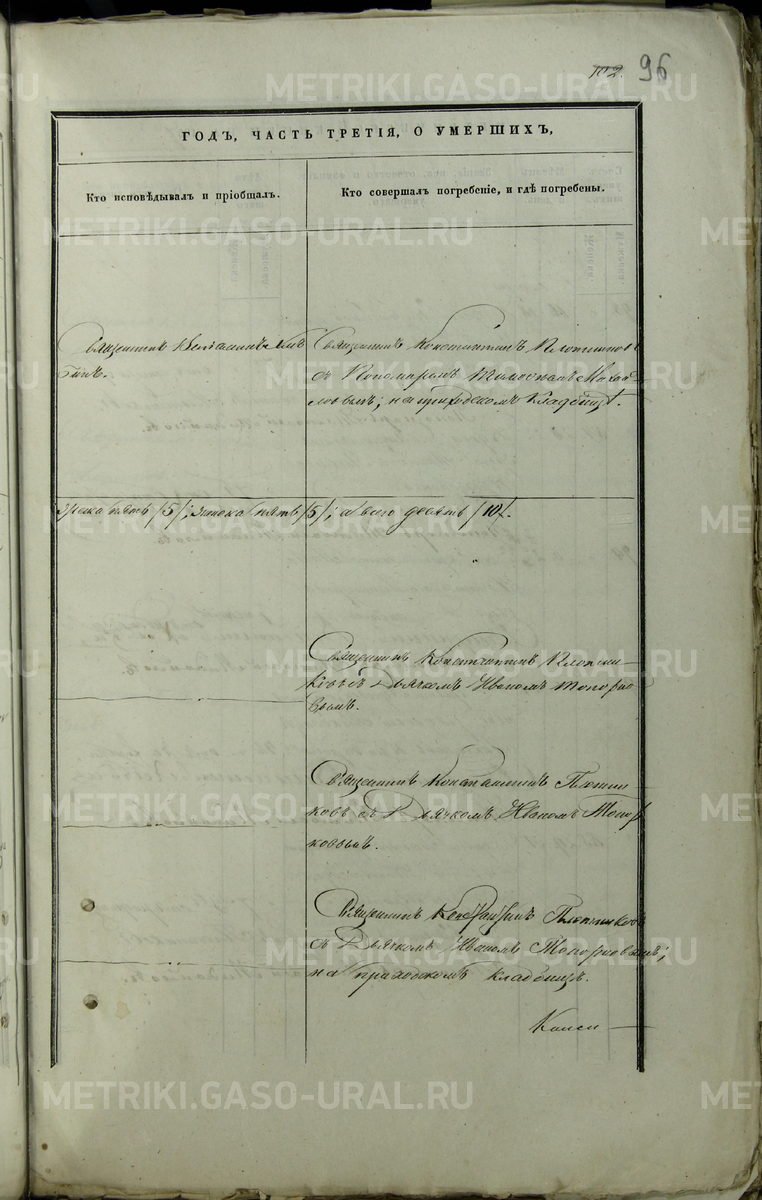 102. 96
ГОДЪ, ЧАСТЬ ТРЕТІЯ, О УМЕРШИХЪ,
Кто исповѣдывалъ и пріобщалъ.
Кто совершалъ погребеніе, и гдѣ погребены.
Священникъ
Священникъ Константинъ Плотниковъ
съ Пономаремъ
на приходскомъ кладбищѣ.
пять /5/; а всего десять /10/.
Священникъ Константинъ Плотни-
ковъ съ Дьячкомъ Иваномъ Топорко
вымъ.
Священникъ Константинъ Плотни
ковъ съ Дьячкомъ Иваномъ Топор
ковымъ.
Священникъ Константинъ Плотниковъ
съ Дьячкомъ Иваномъ Топорковымъ;
на приходскомъ кладбищѣ.
METRIKI.GASO-URAL.RU